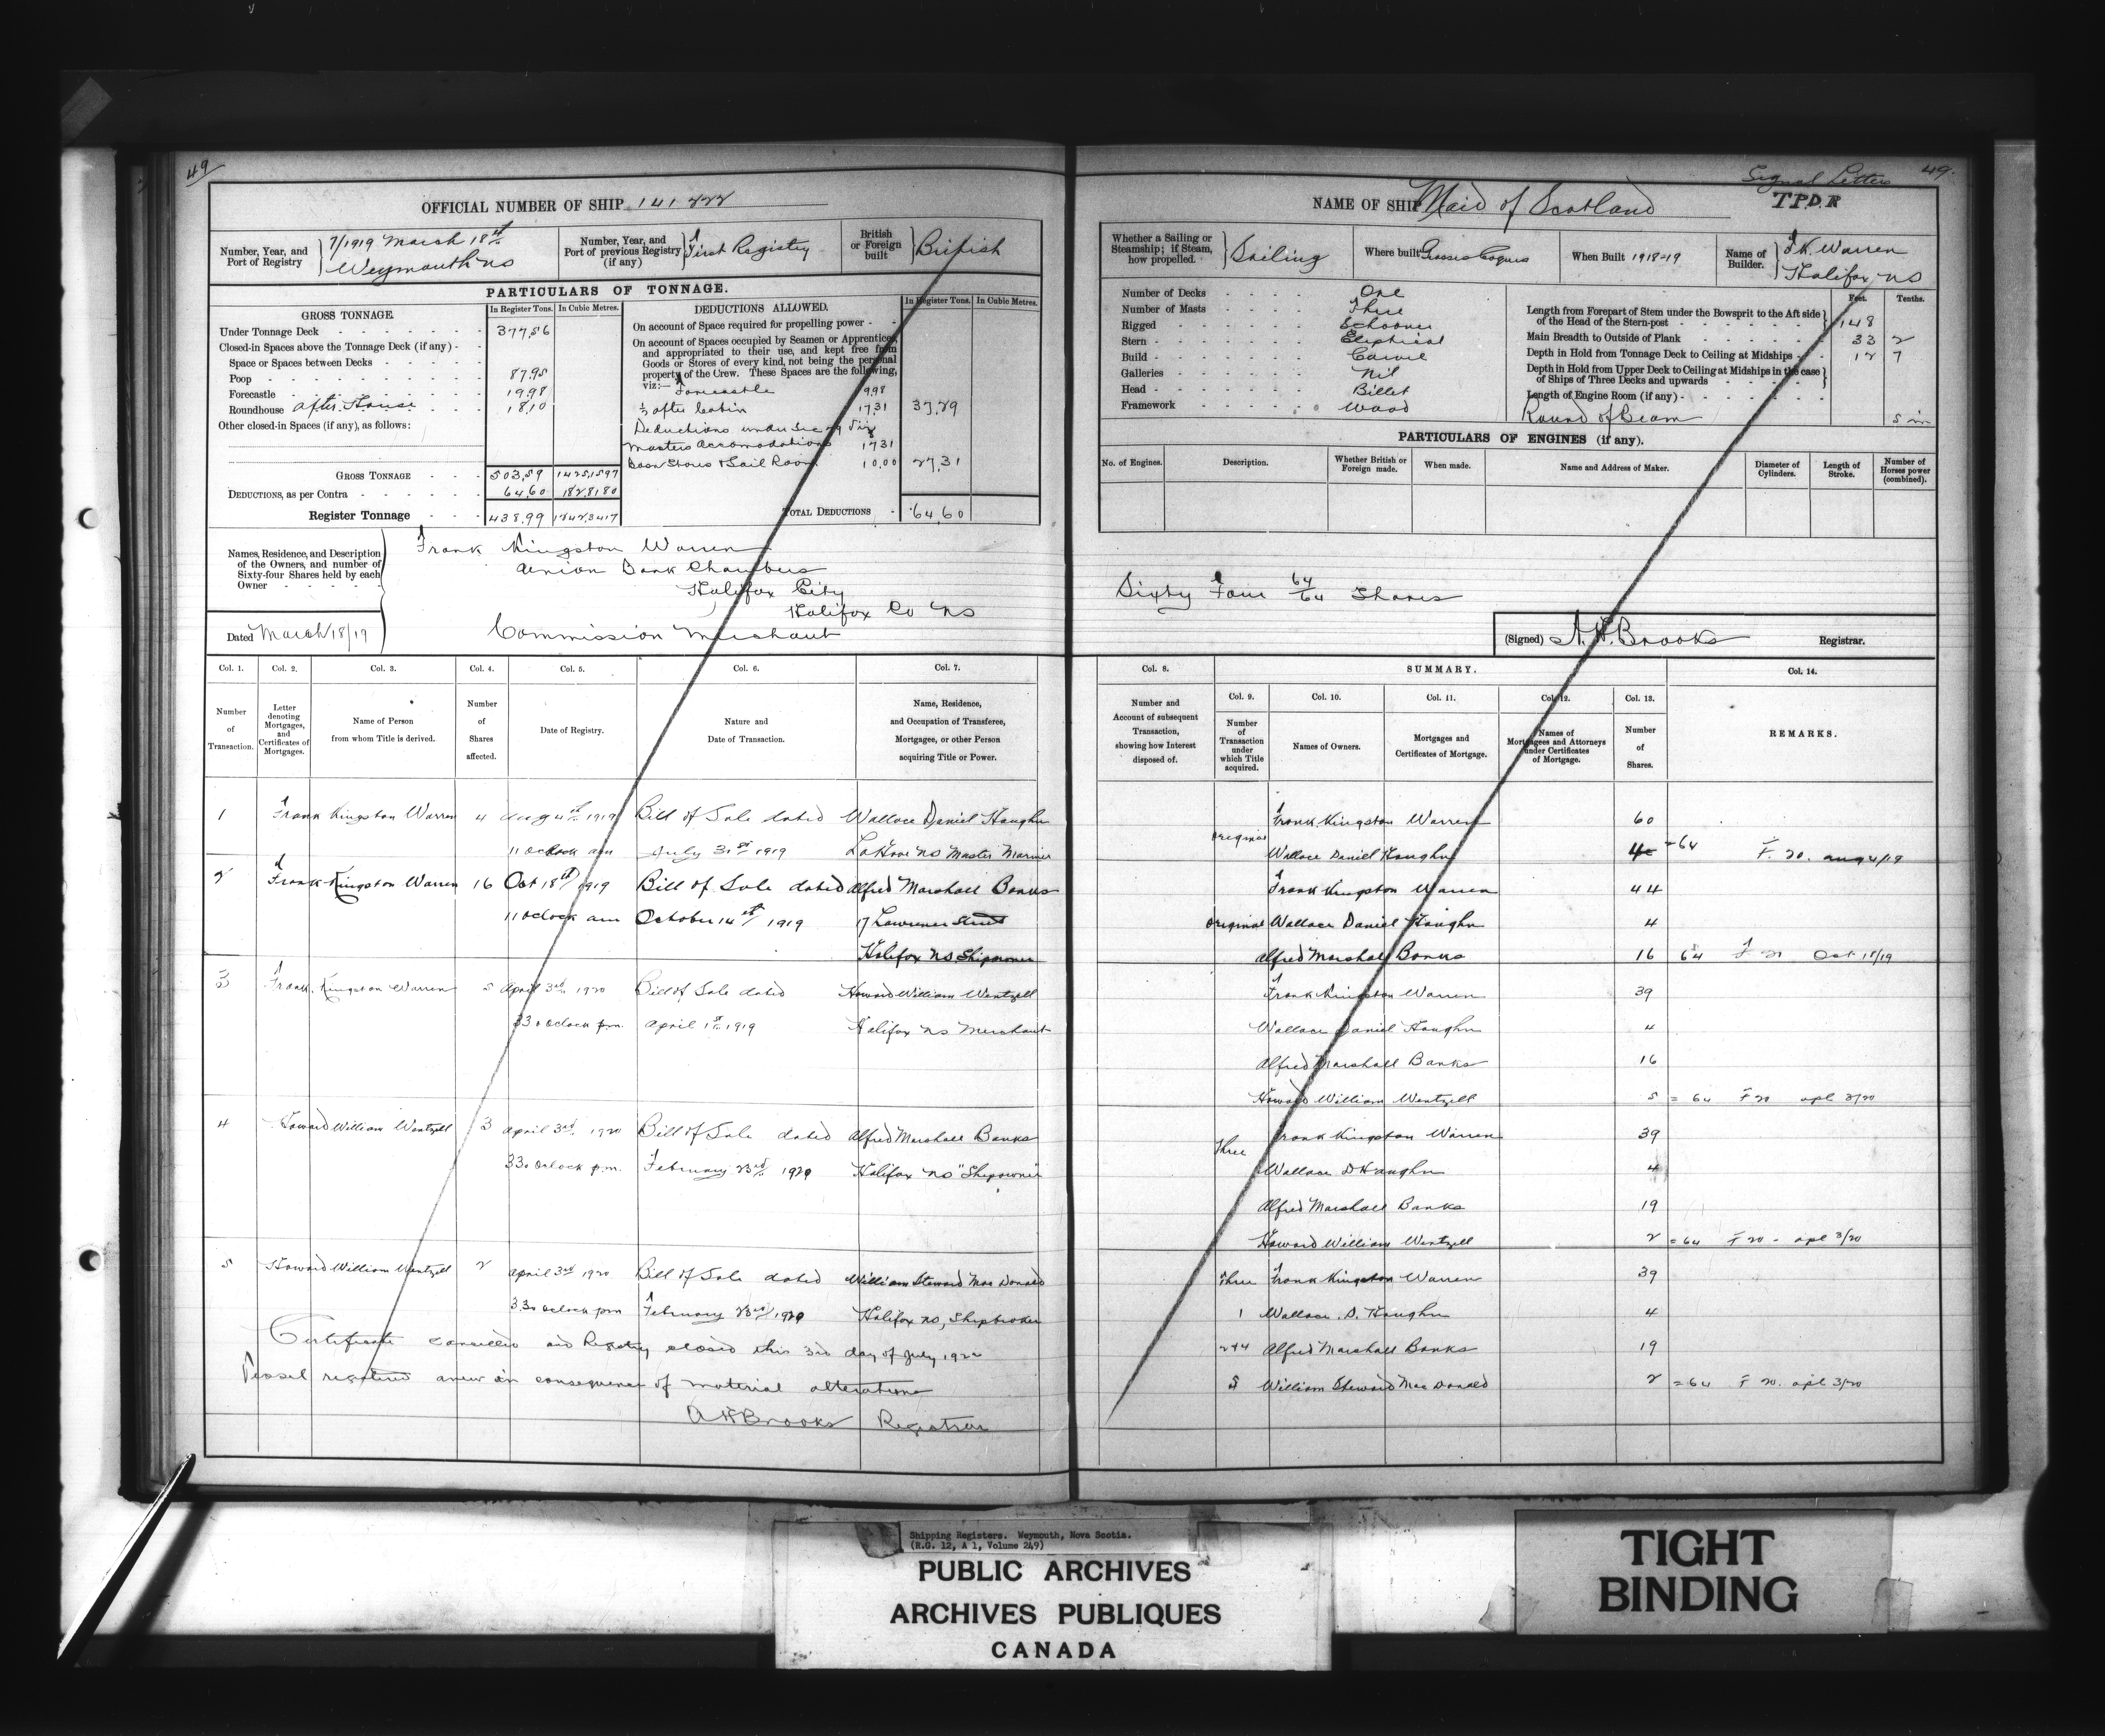 49
OFFICIAL NUMBER OF SHIP 141 222
Number, Year, and Port of Registry
7/1919 March 18th
Weymouth NS
Number, Year, and Port of previous Registry (if any)
First Registry
British or Foreign built
British
PARTICULARS OF TONNAGE.
GROSS TONNAGE.
In Register Tons.
In Cubic Metres.
Under Tonnage Deck 377,56
Closed-in Spaces above the Tonnage Deck (if any)
Space or Spaces between Decks
Poop 87.95
Forecastle 19.98
Roundhouse After House 18.10
Other closed-in Spaces (if any), as follows:
GROSS TONNAGE 503,59 1425,1597
DEDUCTIONS, as per Contra 64,60 182,8180
Register Tonnage 438.99 1242,3417
DEDUCTIONS ALLOWED.
In Register Tons.
In Cubic Metres.
On account of Space required for propelling power
On account of Spaces occupied by Seamen or Apprentices, and appropriated to their use, and kept free from Goods or Stores of every kind, not being the personal property of the Crew. These Spaces are the following, viz:—
Forecastle 9.98
½ after Cabin 17.31 37.29
Deductions under Sec 79 viz
Masters Accomodations 17.31
Boson Stores & Sail Room 10.00 27.31
TOTAL DEDUCTIONS 64.60
Names, Residence, and Description of the Owners, and number of Sixty-four Shares held by each Owner
Frank Kingston Warren
Union Bank Chambers
Halifax City
Halifax Co NS
Commission Merchant
Dated March 18/19
Col. 1. Col. 2. Col. 3. Col. 4. Col. 5. Col. 6. Col. 7.
Number of Transaction.
Letter denoting Mortgages, and Certificates of Mortgages.
Name of Person from whom Title is derived.
Number of Shares affected.
Date of Registry.
Nature and Date of Transaction.
Name, Residence, and Occupation of Transferee, Mortgagee, or other Person acquiring Title or Power.
1 Frank Kingston Warren 4 Aug 4th 1919 Bill of Sale dated Wallace Daniel Haughn
11 oclock am July 31st 1919 LaHave NS Master Mariner
2 Frank Kingston Warren 16 Oct 18th 1919 Bill of Sale dated Alfred Marshall Banks
11 oclock am October 14th 1919 17 Lawrence Street
Halifax NS Shipowner
3 Frank Kingston Warren 5 April 3rd 1920 Bill of Sale dated Howard William Wentzell
330 oclock pm. April 1st 1919 Halifax NS Merchant
4 Howard William Wentzell 3 April 3rd 1920 Bill of Sale dated Alfred Marshall Banks
330 oclock pm. February 23rd 1920 Halifax NS "Shipowner"
5 Howard William Wentzell 2 April 3rd 1920 Bill of Sale dated William Steward Mac Donald
3.30 oclock pm February 23rd 1920 Halifax NS, Shipbroker
Certificate cancelled and Registry closed this 3rd day of July 1922
Vessel registered anew in consequence of material alterations
A H Brooks Registrar
49.
Signal Letters
TPDR
NAME OF SHIP Maid of Scotland
Whether a Sailing or Steamship; if Steam, how propelled.
Sailing
Where built Grosses Coques
When Built 1918-19
Name of Builder.
F.K. Warren
Halifax NS
Number of Decks One
Number of Masts Three
Rigged Schooner
Stern Eliptical
Build Carvel
Galleries Nil
Head Billet
Framework Wood
Feet. Tenths.
Length from Forepart of Stem under the Bowsprit to the Aft side of the Head of the Stern-post 148
Main Breadth to Outside of Plank 33 2
Depth in Hold from Tonnage Deck to Ceiling at Midships 12 7
Depth in Hold from Upper Deck to Ceiling at Midships in the case of Ships of Three Decks and upwards
Length of Engine Room (if any)
Round of Beam 5 in
PARTICULARS OF ENGINES (if any).
No. of Engines.
Description.
Whether British or Foreign made.
When made.
Name and Address of Maker.
Diameter of Cylinders.
Length of Stroke.
Number of Horses power (combined).
Sixty Four 64/64 Shares
(Signed) A. H. Brooks Registrar.
Col. 8. SUMMARY. Col. 14.
Col. 9. Col. 10. Col. 11. Col. 12. Col. 13.
Number and Account of subsequent Transaction, showing how Interest disposed of.
Number of Transaction under which Title acquired.
Names of Owners.
Mortgages and Certificates of Mortgage.
Names of Mortgagees and Attorneys under Certificates of Mortgage.
Number of Shares.
REMARKS.
Frank Kingston Warren 60
Original Wallace Daniel Haughn 4 = 64 F. 20. Aug 4/19
Frank Kingston Warren 44
Original Wallace Daniel Haughn 4
Alfred Marshall Banks 16 64 F 20 Oct 18/19
Frank Kingston Warren 39
Wallace Daniel Haughn 4
Alfred Marshall Banks 16
Howard William Wentzell 5 = 64 F 20 apl 3/20
Three Frank Kingston Warren 39
Wallace D Haughn 4
Alfred Marshall Banks 19
Howard William Wentzell 2 = 64 F 20 - apl 3/20
Three Frank Kingston Warren 39
1 Wallace. D. Haughn 4
2+4 Alfred Marshall Banks 19
5 William Steward Mac Donald 2 = 64 F 20. apl 3/20
Shipping Registers. Weymouth, Nova Scotia.
(R.G. 12, A 1, Volume 249)
PUBLIC ARCHIVES
ARCHIVES PUBLIQUES
CANADA
TIGHT
BINDING